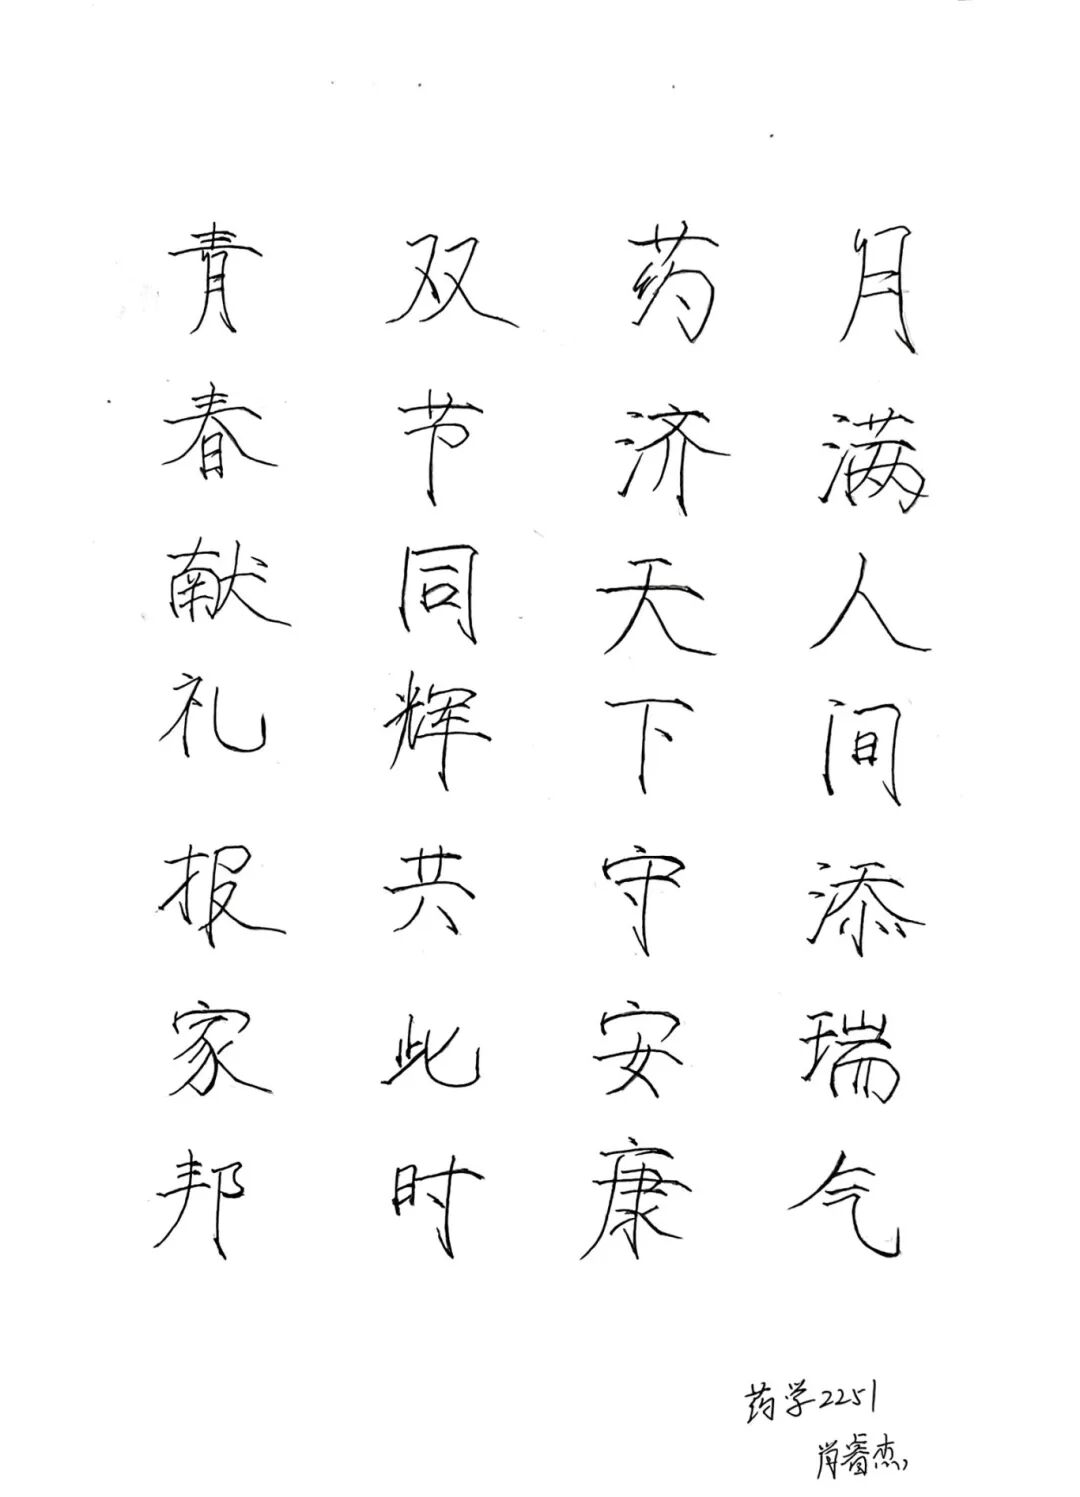 月满人间添瑞气
药济天下守安康
双节同辉共此时
青春献礼报家邦
药学2251
肖睿杰